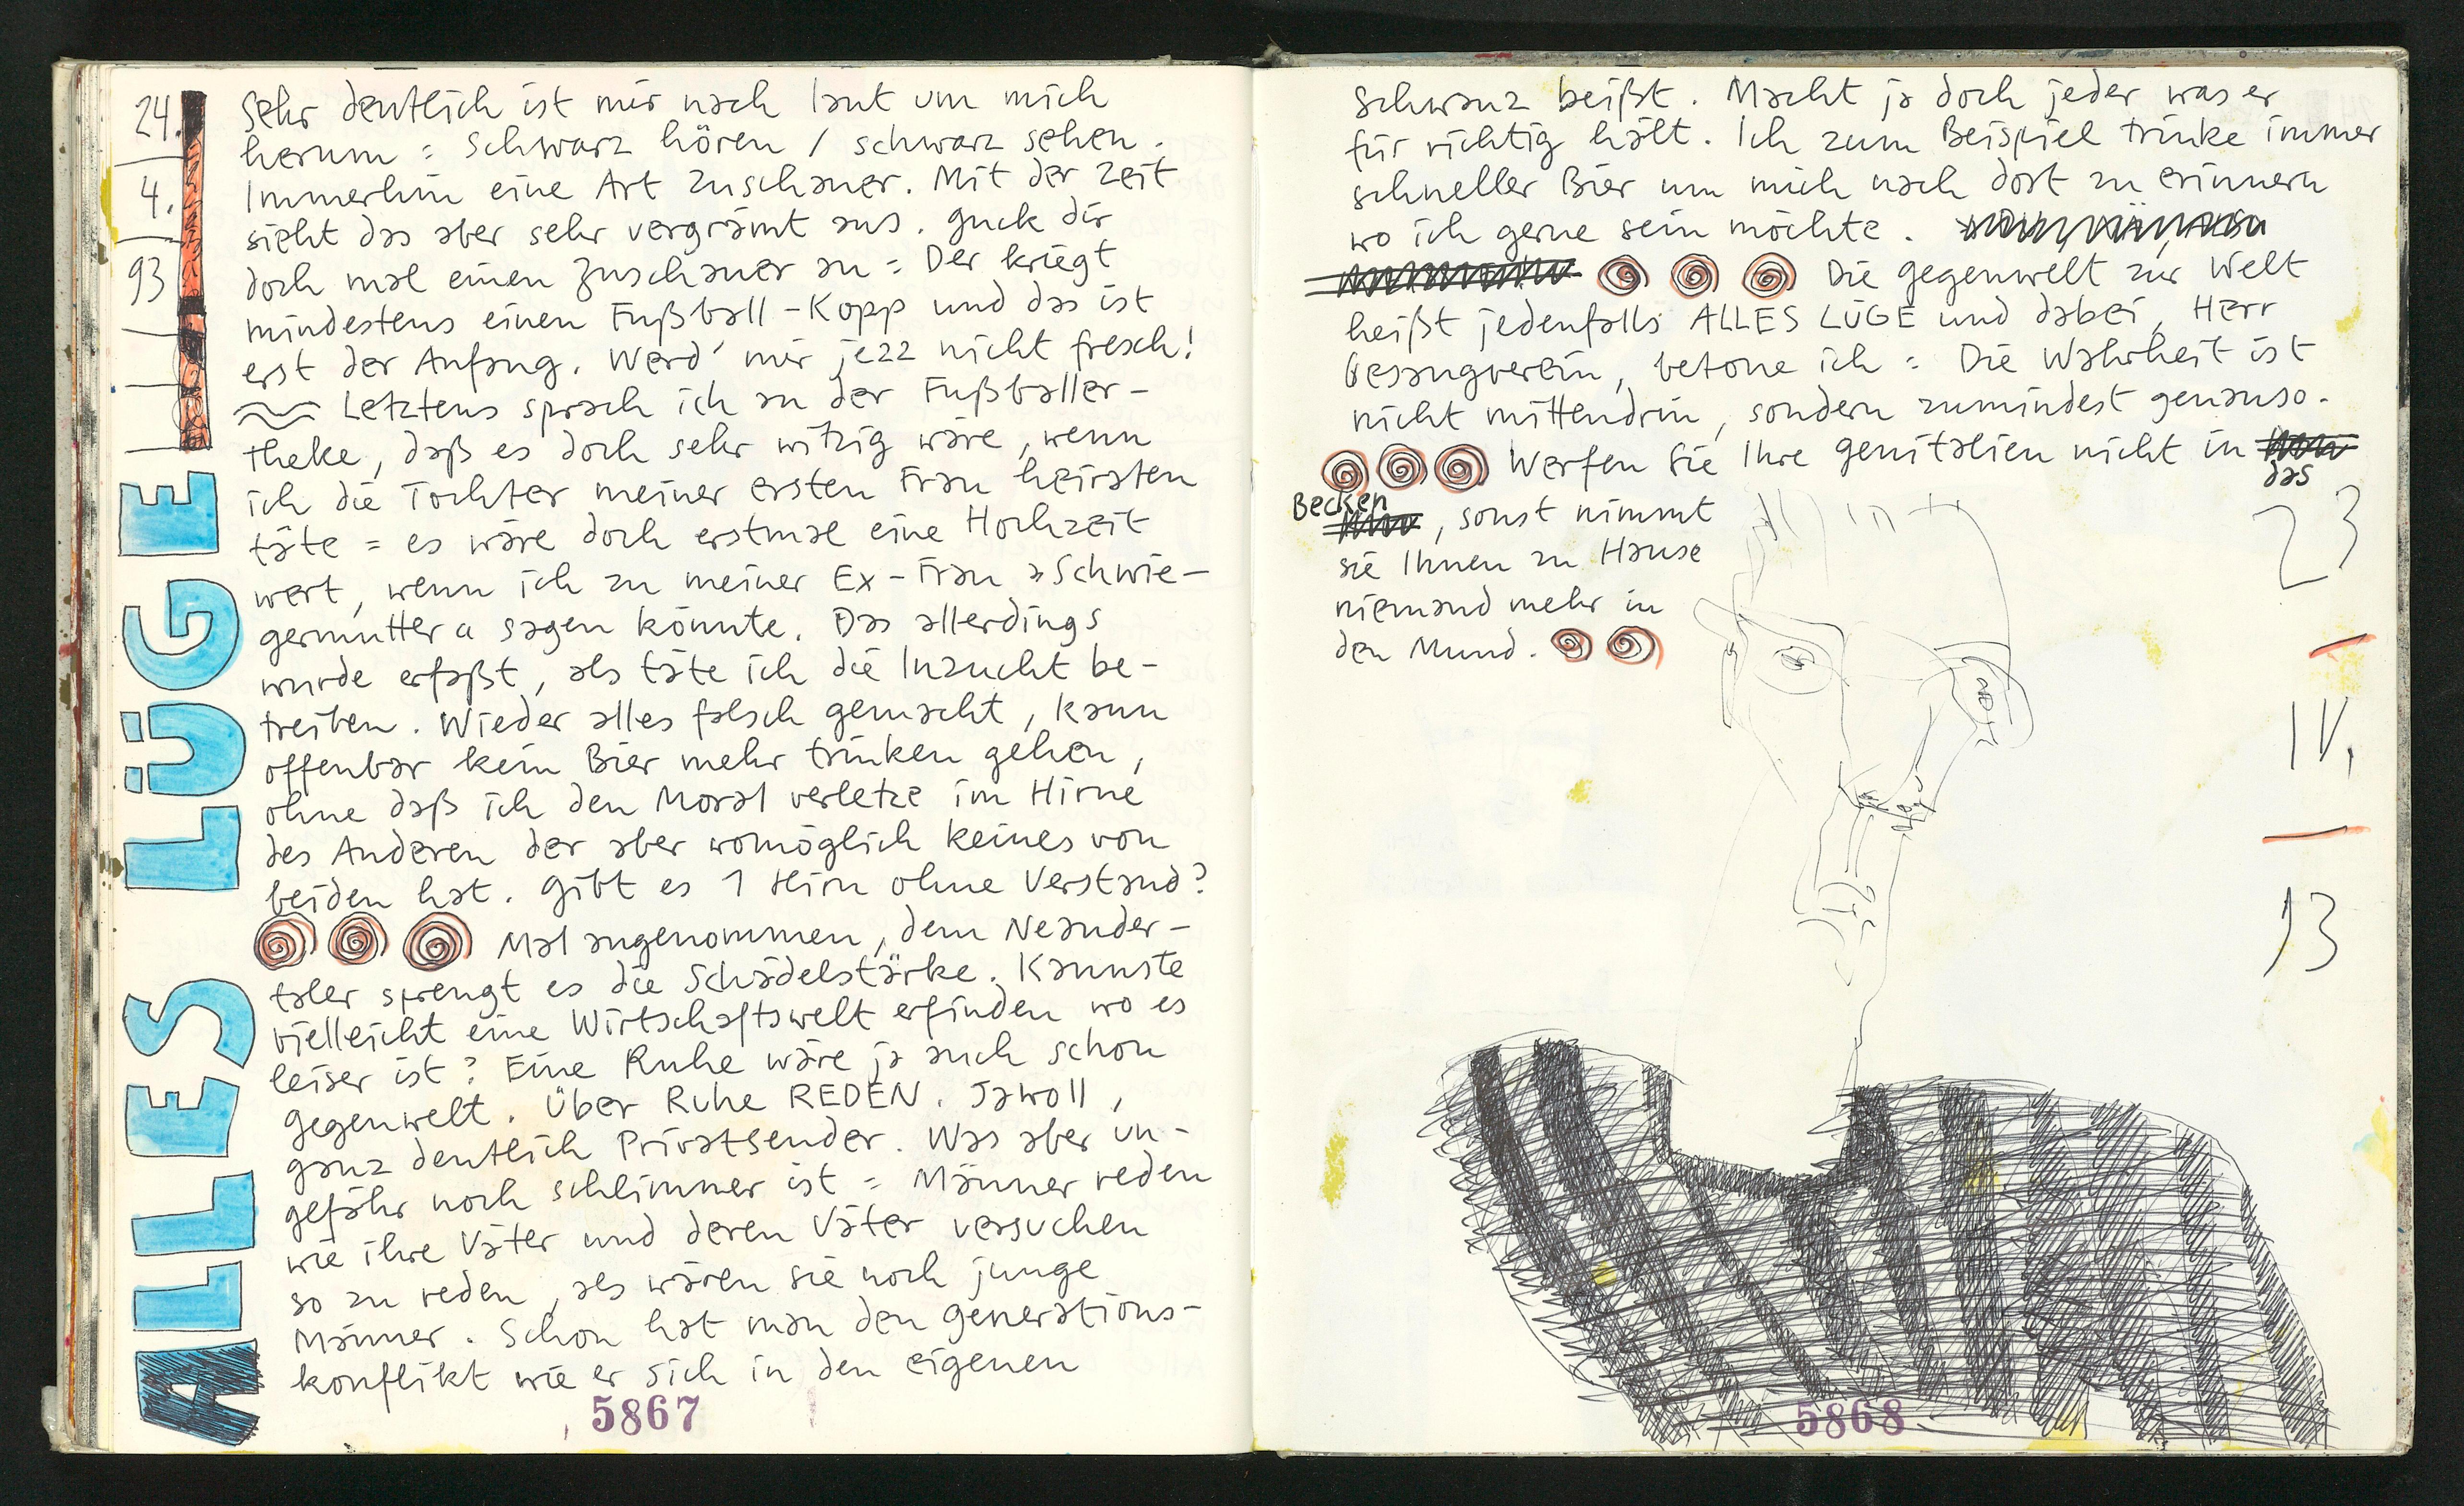 24.
4.
93
ALLES LÜGE
Sehr deutlich ist mir nach laut um mich
herum = Schwarz hören / schwarz sehen.
Immerhin eine Art Zuschauer. Mit der Zeit
sieht das aber sehr vergrämt aus. Guck dir
doch mal einen Zuschauer an = Der kriegt
mindestens einen Fußball-Kopp und das ist
erst der Anfang. Werd' mir jezz nicht frech!
Letztens sprach ich an der Fußballer-
theke, daß es doch sehr witzig wäre, wenn
ich die Tochter meiner ersten Frau heiraten
täte = es wäre doch erstmal eine Hochzeit
wert, wenn ich zu meiner Ex-Frau »Schwie-
germutter« sagen könnte. Das allerdings
wurde erfaßt, als täte ich die Inzucht be-
treiben. Wieder alles falsch gemacht, kann
offenbar kein Bier mehr trinken gehen,
ohne daß ich den Moral verletze im Hirne
des Anderen der aber womöglich keines von
beiden hat. Gibt es 1 Hirn ohne Verstand?
Mal angenommen, dem Neander-
taler sprengt es die Schädelstärke. Kannste
vielleicht eine Wirtschaftswelt erfinden wo es
leiser ist? Eine Ruhe wäre ja auch schon
Gegenwelt. Über Ruhe REDEN. Jawoll,
ganz deutlich Privatsender. Was aber un-
gefähr noch schlimmer ist = Männer reden
wie ihre Väter und deren Väter versuchen
so zu reden, als wären sie noch junge
Männer. Schon hat man den Generations-
konflikt wie er sich in den eigenen
5867
Schwanz beißt. Macht ja doch jeder was er
für richtig hält. Ich zum Beispiel trinke immer
schneller Bier um mich nach dort zu erinnern
wo ich gerne sein möchte.
Die Gegenwelt zur Welt
heißt jedenfalls ALLES LÜGE und dabei, Herr
Gesangverein, betone ich = Die Wahrheit ist
nicht mittendrin, sondern zumindest genauso.
Werfen Sie Ihre Genitalien nicht in
das
Becken
, sonst nimmt
sie Ihnen zu Hause
niemand mehr in
den Mund.
23
IV.
93
5868